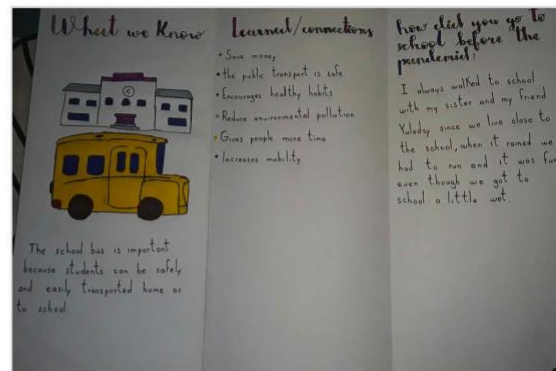 What we Know
The school bus is important
because students can be safely
and easily transported home or
to school
Learned/connections
• Save money
• the public transport is safe
• Encourages healthy habits
• Reduce environmental pollution
• Gives people more time
• Increases mobility
how did you go to
school before the
pandemic?
I always walked to school
with my sister and my friend
Yuledsy since we live close to
the school, when it rained we
had to run and it was fun
even though we got to
school a little wet.